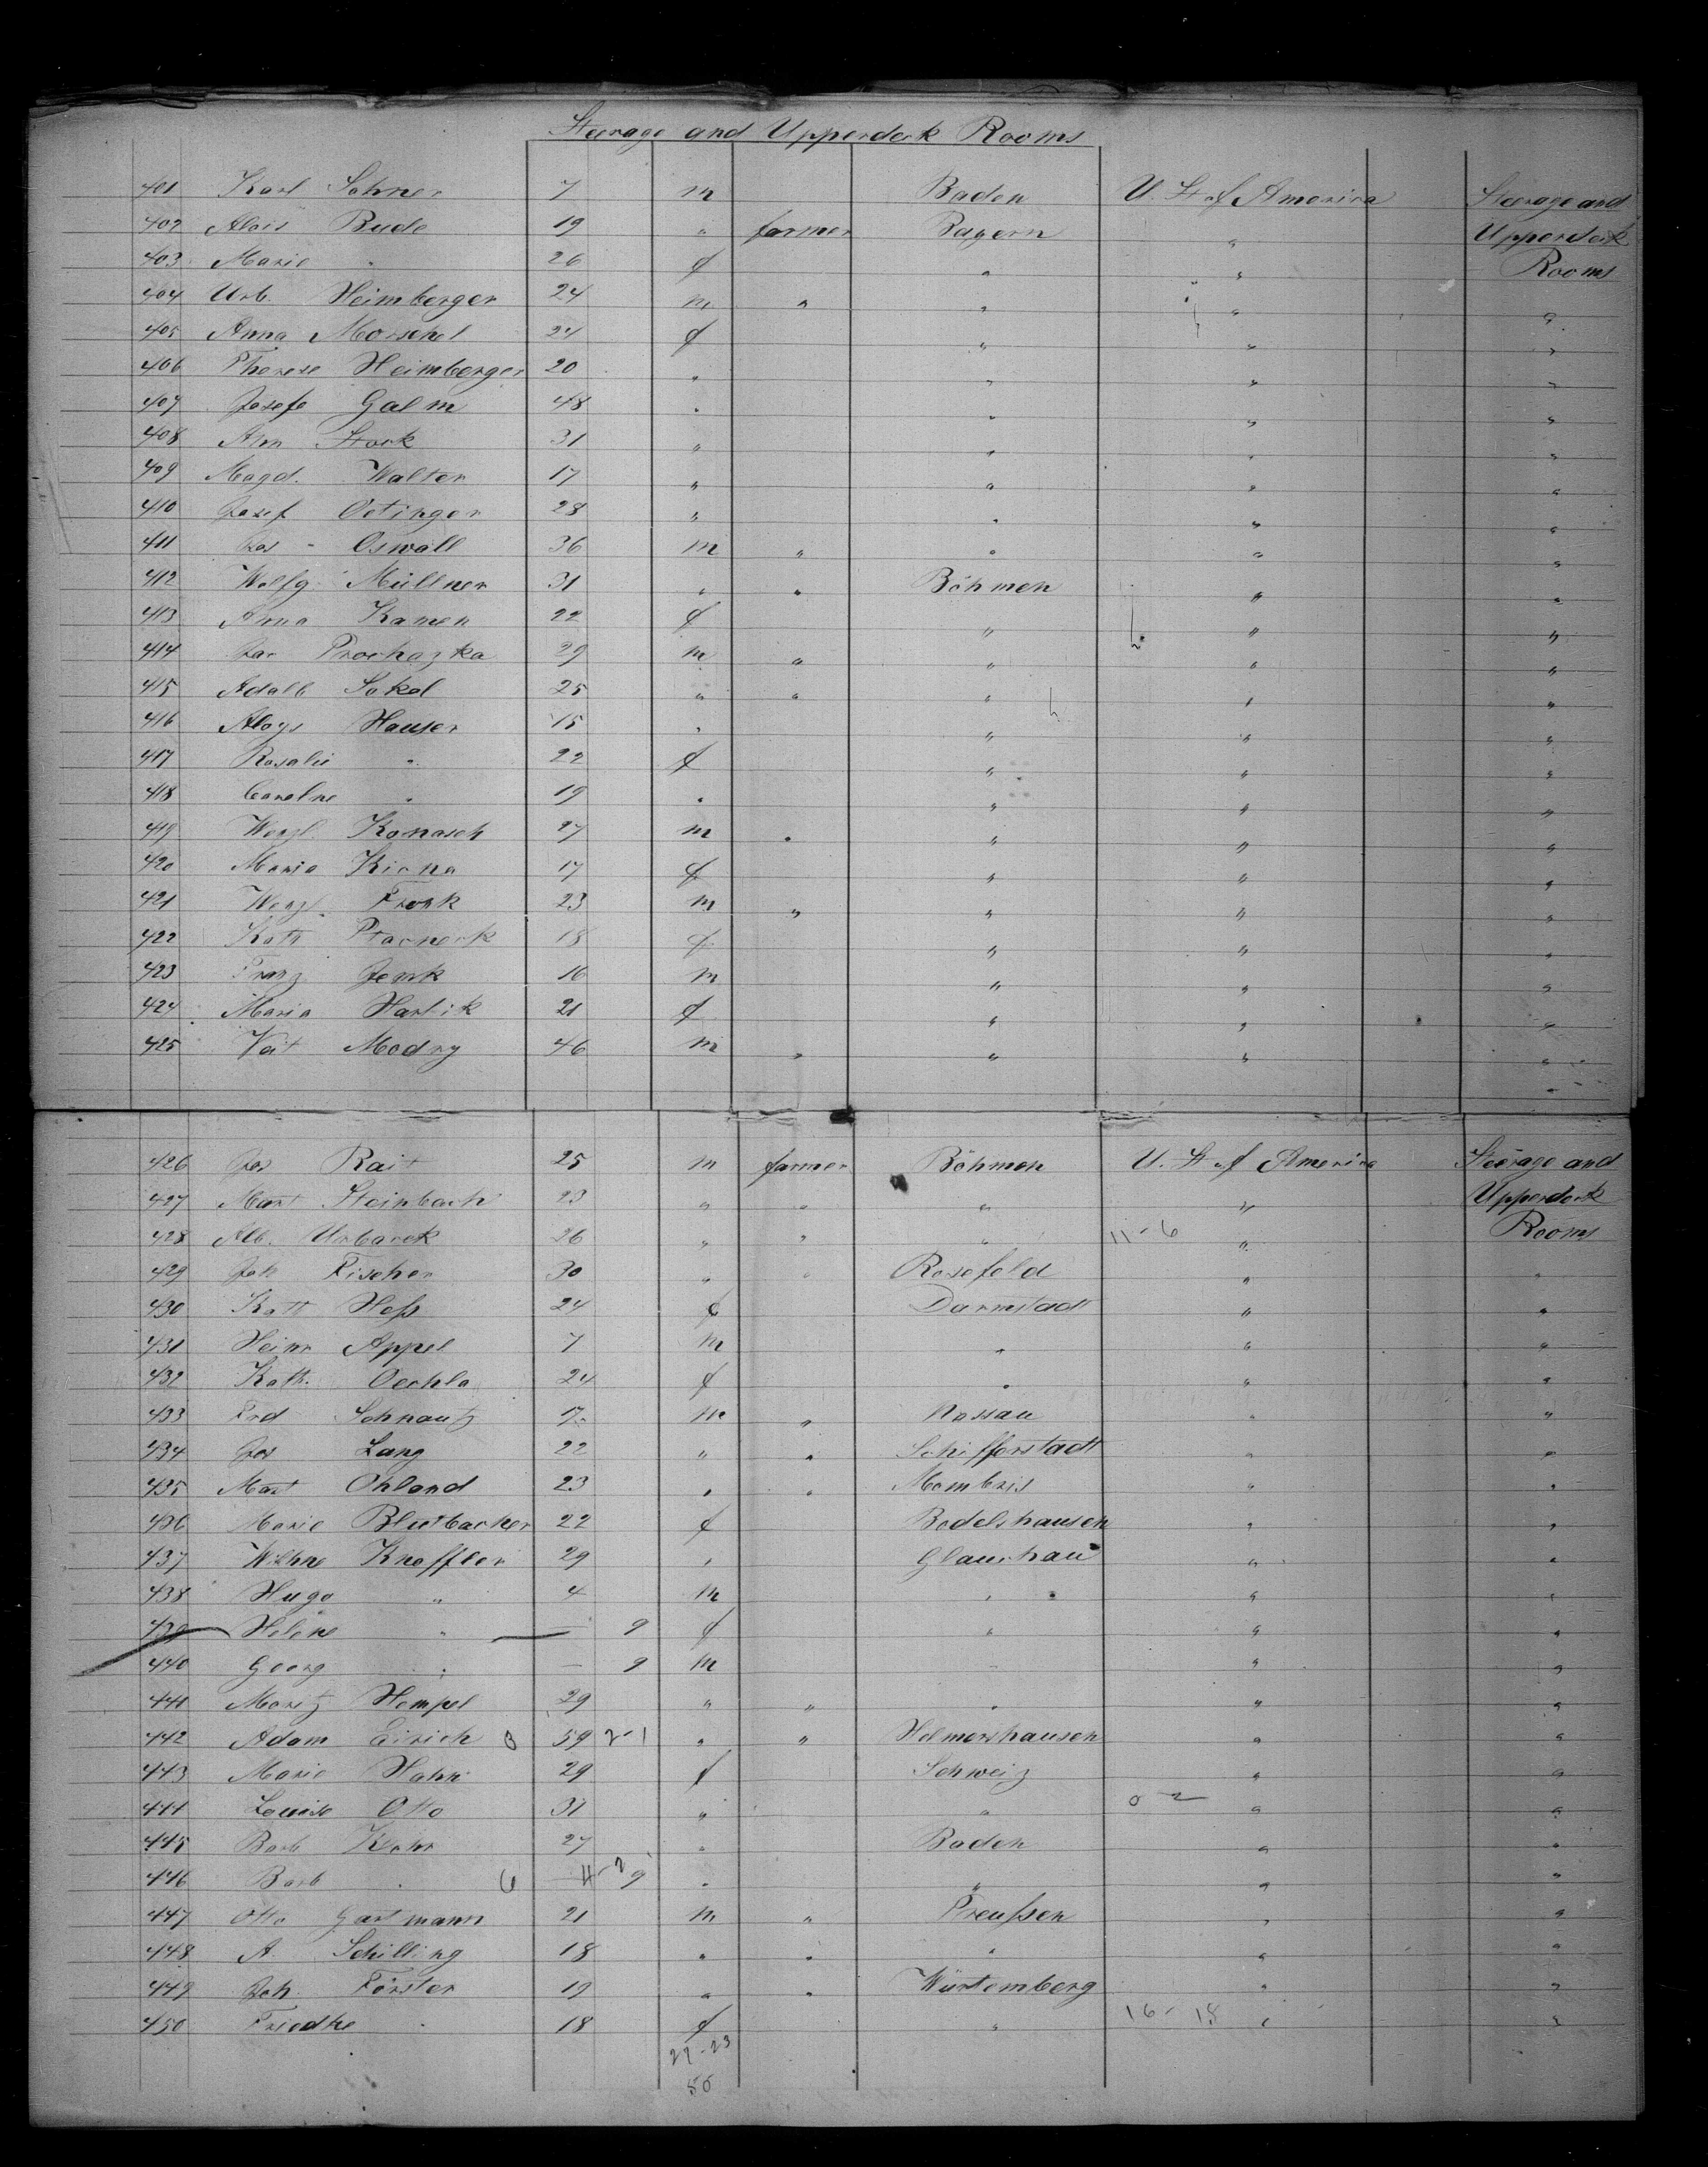 Steerage and Upperdeck Rooms
401 Karl Sohner 7 m Baden U. St of America Steerage and
402 Alois Bude 19 " farmer Bayern " Upperdeck
403 Marie " 26 f " " Rooms
404 Urb. Heimberger 24 m " " " "
405 Anna Morschel 24 f " " "
406 Therese Heimberger 20 " " " "
407 Josefa Galm 48 " " " "
408 Ann Stock 31 " " " "
409 Magd. Walter 17 " " " "
410 Josef Oetinger 28 " " " "
411 Jos " Oswall 36 m " " " "
412 Wolfg. Müllner 31 " " Böhmen " "
413 Anna Kamen 22 f " " "
414 Prochazka 29 m " " " "
415 Adalb Sokol 25 " " " " "
416 Aloys Hauser 15 " " " "
417 Rosalie " 22 f " " "
418 Caroline " 19 " " " "
419 Wenzl. Konasch 27 m " " " "
420 Maria Kirna 17 f " " "
421 Wenzl. Fronk 23 m " " " "
422 Kath 18 f " " "
423 Franz Jenik 16 m " " "
424 Maria Harlik 21 f " " "
425 Veit Modry 46 m " " " "
426 Jos Rait 25 m farmer Böhmen U. St of America Steerage and
427 Mart Steinbach 23 " " " " Upperdeck
428 Alb. Urbanek 26 " " " 11-6 " Rooms
429 Joh Fischer 30 " " Rosefeld " "
430 Kath Heß 24 f Darmstadt " "
431 Heinr Appel 7 m " " "
432 Kath. Oechla 24 f " " "
433 Frd Schnautz 17 m " Nassau " "
434 Jos Lang 22 " " Schifferstadt " "
435 Mart Ohland 23 " " Mombris " "
436 Marie Blutbacher 22 f Bodelshausen " "
437 Wilhne Knoffler 29 " Glauchau " "
438 Hugo " 4 m " " "
439 Helene " — 9 f " " "
440 Georg " — 9 m " " "
441 Moritz Hempel 29 " " " " "
442 Adam Eirich 3 59 2-1 " " Helmershausen " "
443 Marie Hahn 29 f Schweiz " "
444 Louise Otto 31 " " 0 2 " "
445 Barb Klohr 27 " Baden " "
446 Barb " 6 — 4-2 9 " " " "
447 Otto Gartmann 21 m " Preußen " "
448 A. Schilling 18 " " " " "
449 Joh. Förster 19 " " Würtemberg " "
450 Friedke " 18 f " 16-18 " "
27-23
50